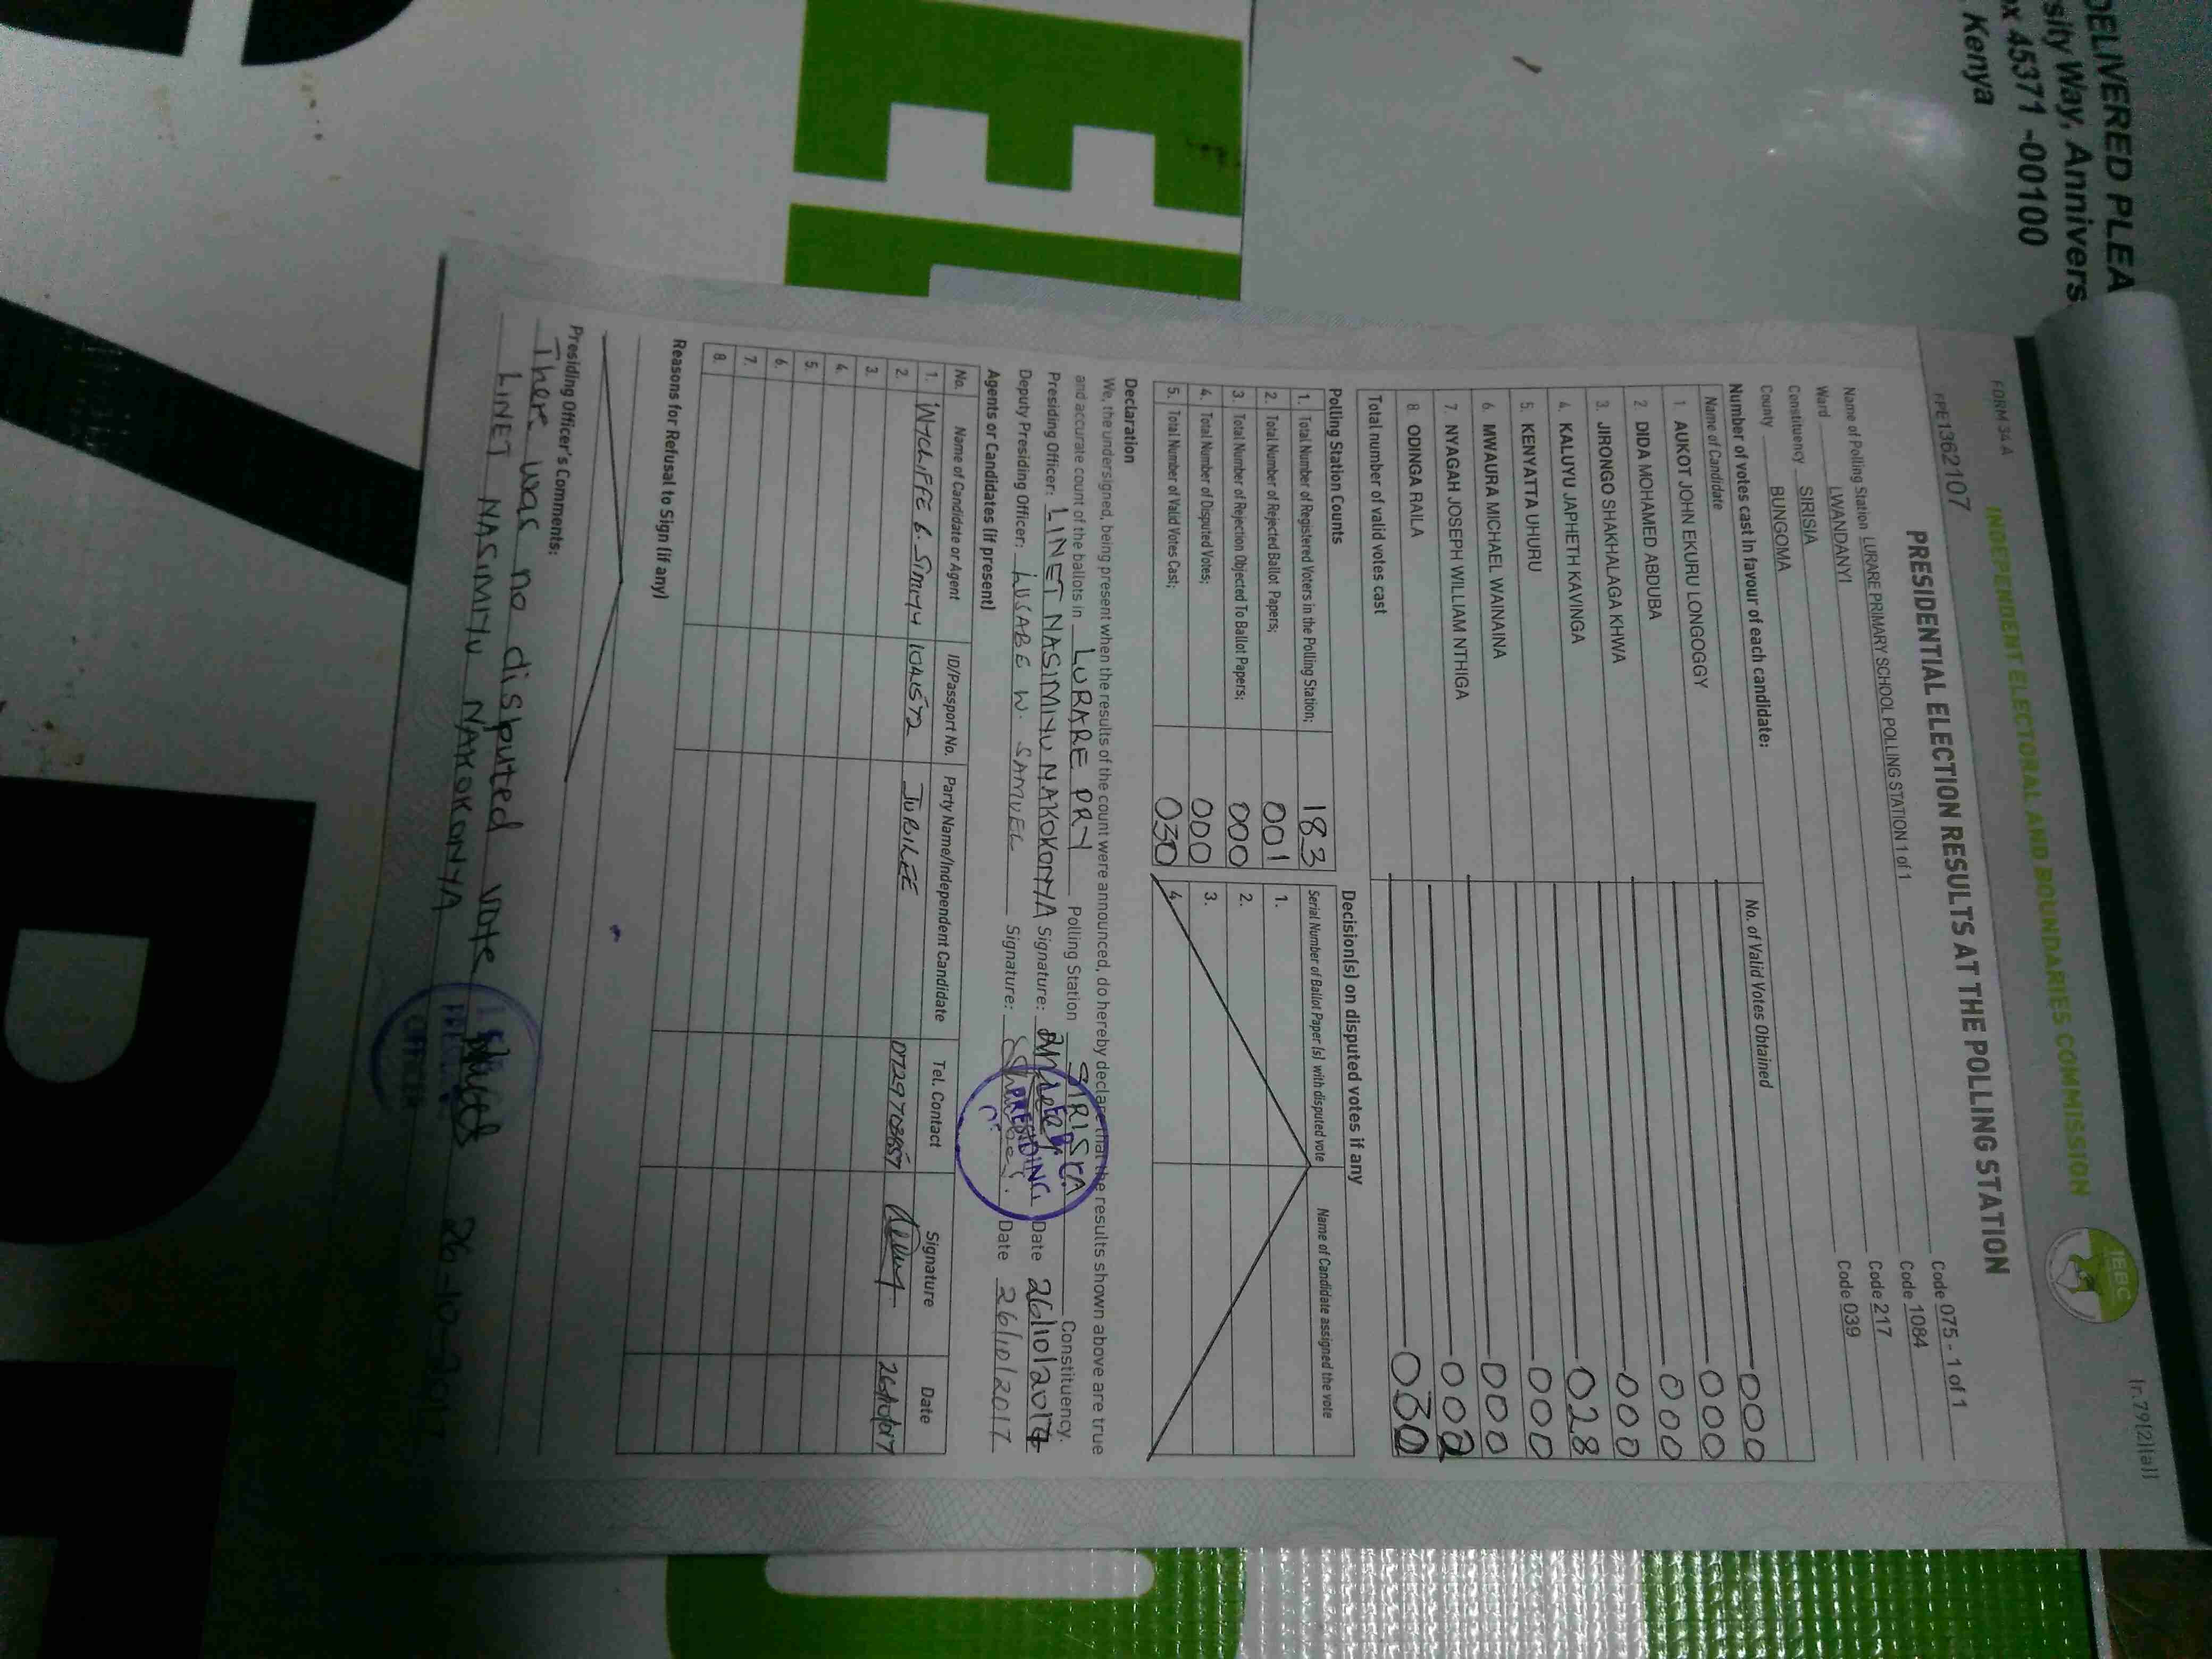 DELIVERED PLEA
sity Way, Annivers
ox 45371 -00100
Kenya
FORM 34A
INDEPENDENT ELECTORAL AND BOUNDARIES COMMISSION
IEBC
(r.79(2)(a))
PPE1362107
PRESIDENTIAL ELECTION RESULTS AT THE POLLING STATION
Name of Polling Station LURARE PRIMARY SCHOOL POLLING STATION 1 of 1 Code 075 - 1 of 1
Ward LWANDANYI Code 1084
Constituency SIRISIA Code 217
County BUNGOMA Code 039
Number of votes cast in favour of each candidate:
Name of Candidate No. of Valid Votes Obtained
1. AUKOT JOHN EKURU LONGOGGY 000
2. DIDA MOHAMED ABDUBA 000
3. JIRONGO SHAKHALAGA KHWA 000
4. KALUYU JAPHETH KAVINGA 000
5. KENYATTA UHURU 028
6. MWAURA MICHAEL WAINAINA 000
7. NYAGAH JOSEPH WILLIAM NTHIGA 000
8. ODINGA RAILA 002
Total number of valid votes cast 030
Polling Station Counts
1. Total Number of Registered Voters in the Polling Station; 183
2. Total Number of Rejected Ballot Papers; 001
3. Total Number of Rejection Objected To Ballot Papers; 000
4. Total Number of Disputed Votes; 000
5. Total Number of Valid Votes Cast; 030
Decision(s) on disputed votes if any
Serial Number of Ballot Paper (s) with disputed vote Name of Candidate assigned the vote
1.
2.
3.
4.
Declaration
We, the undersigned, being present when the results of the count were announced, do hereby declare that the results shown above are true
and accurate count of the ballots in LURARE PRY Polling Station SIRISIA Constituency.
Presiding Officer: LINET NASIMIYU NAKOKONYA Signature: Date 26/10/2017
Deputy Presiding Officer: LUSABE W. SAMUEL Signature: Date 26/10/2017
PRESIDING
Agents or Candidates (if present)
No. Name of Candidate or Agent ID/Passport No. Party Name/Independent Candidate Tel. Contact Signature Date
1. WYCLIFFE 6. SIMIYU 10421572 JUBILEE 26/10/017
2.
3.
4.
5.
6.
7.
8.
Reasons for Refusal to Sign (if any)
Presiding Officer's Comments:
There was no disputed vote
LINET NASIMIYU NAKOKONYA 26-10-2017
OFFICER